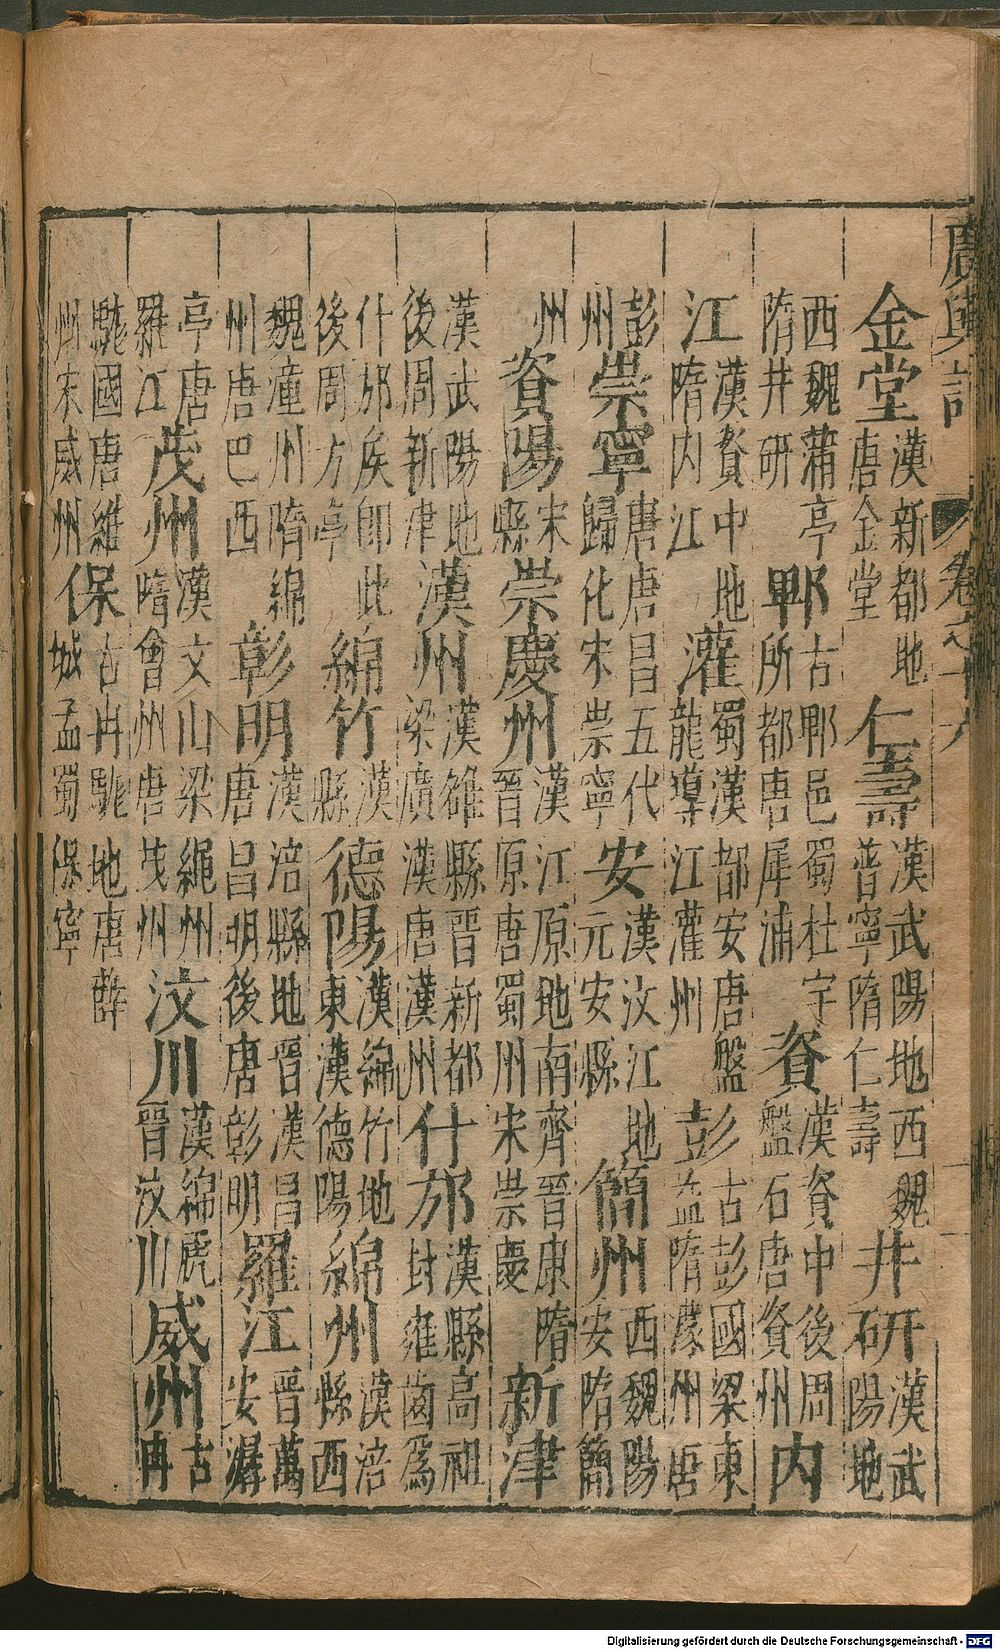 廣輿記 卷之十六
金堂漢新都地唐金堂仁壽漢武陽地西魏普寧隋仁壽井研漢武陽地
西魏蒲亭隋井研郫古郫邑蜀杜宇所都唐犀浦資漢資中後周盤石唐資州內
江漢資中地隋內江灌蜀漢都安唐盤龍導江灌州彭古彭國梁東益隋濛州唐
彭州崇寧唐唐昌五代歸化宋崇寧安漢汶江地元安縣簡州西魏陽安隋簡
州資陽宋縣崇慶州漢江原地南齊晉康隋晉原唐蜀州宋崇慶新津
漢武陽地後周新津漢州漢雒縣晉新都梁廣漢唐漢州什邡漢縣高祖封雍齒爲
什邡矦即此後周方亭綿竹漢縣德陽漢綿竹地東漢德陽綿州漢涪縣西
魏潼州隋綿州唐巴西彰明漢涪縣地晉漢昌唐昌明後唐彰明羅江晉萬安潺
亭唐羅江茂州漢文山梁繩州隋會州唐茂州汶川漢綿虒晉汶川威州古冉
駹國唐維州宋威州保古冉駹地唐薛城孟蜀保寧
Digitalisierung gefördert durch die Deutsche Forschungsgemeinschaft - DFG